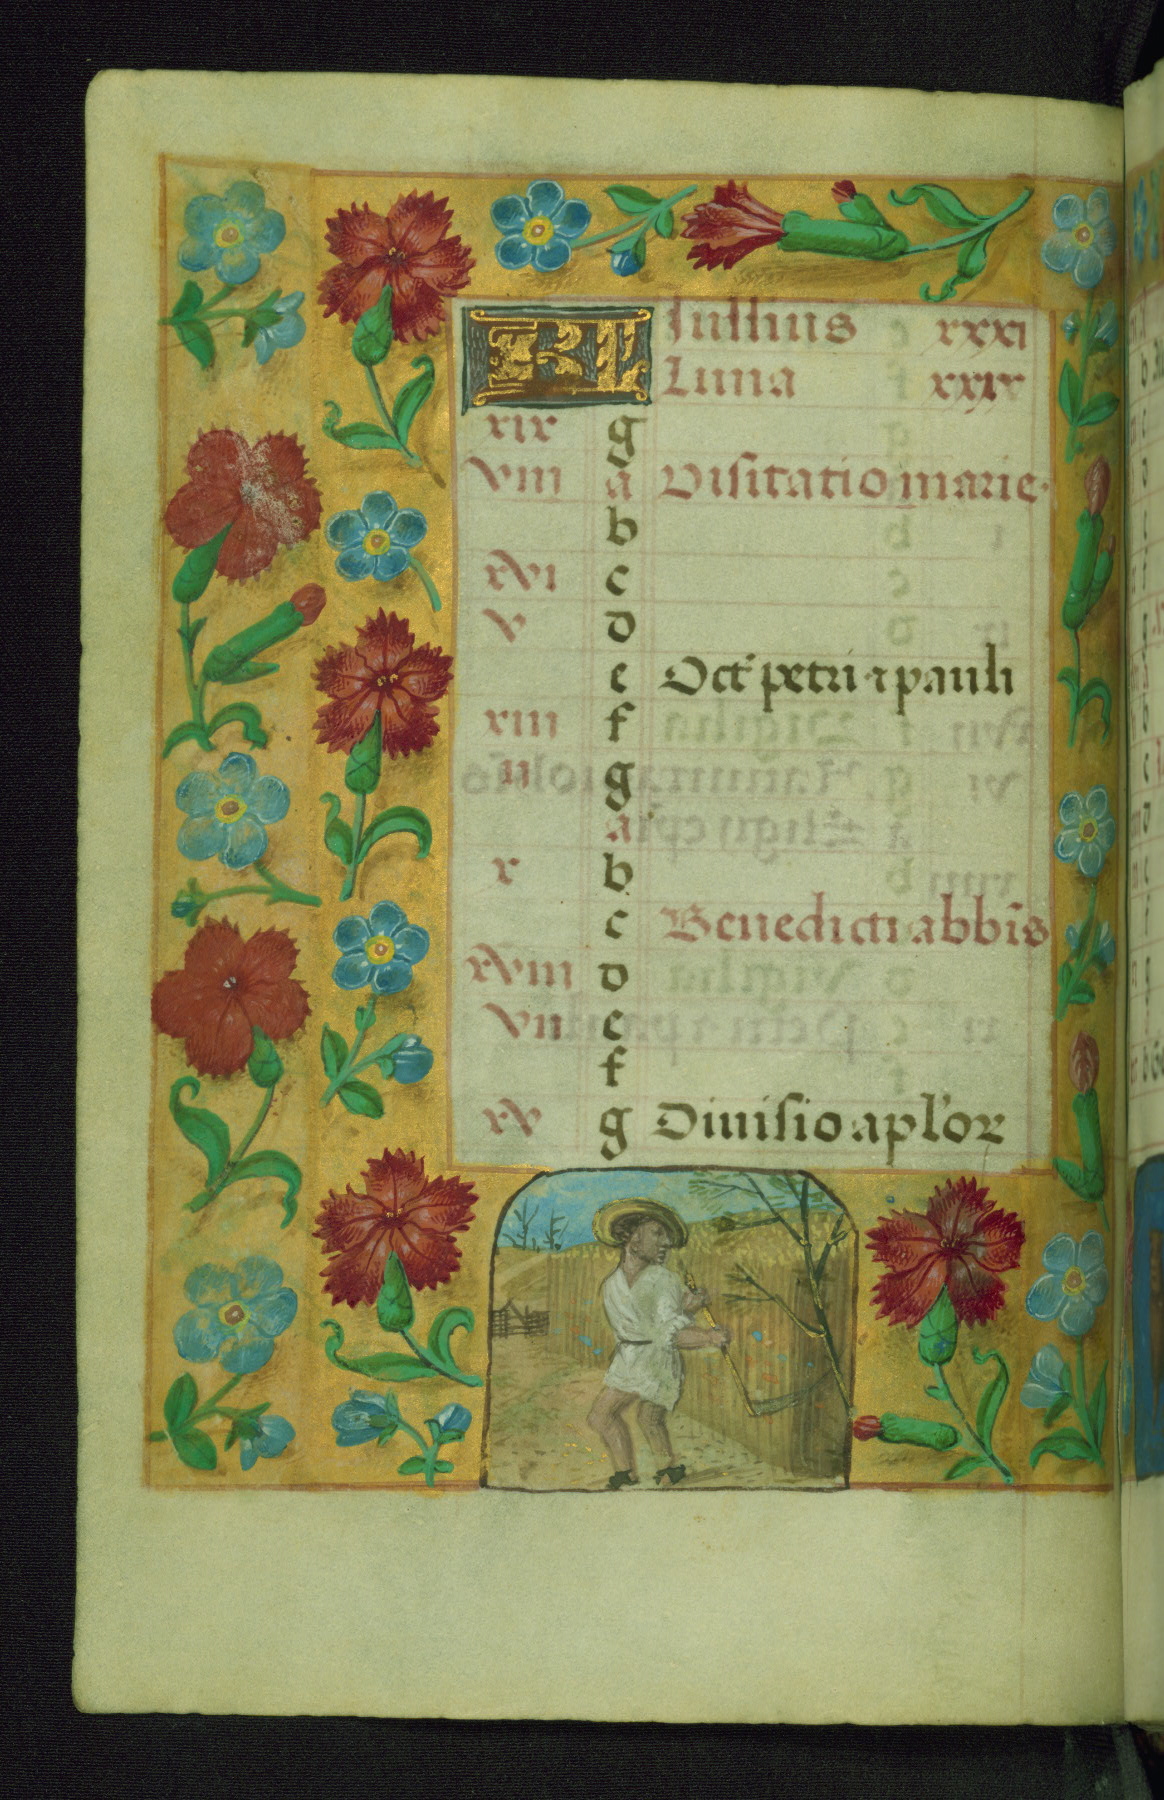 KL Iullius xxxi
Luna xxix
xix g
viii a Visitatio marie.
b
xvi c
v d
e Oct̄ petri ⁊ pauli
xiii f
ii g
a
x b
c Benedicti abbīs
xviii d
vii e
f
xv g Diuisio apl'or